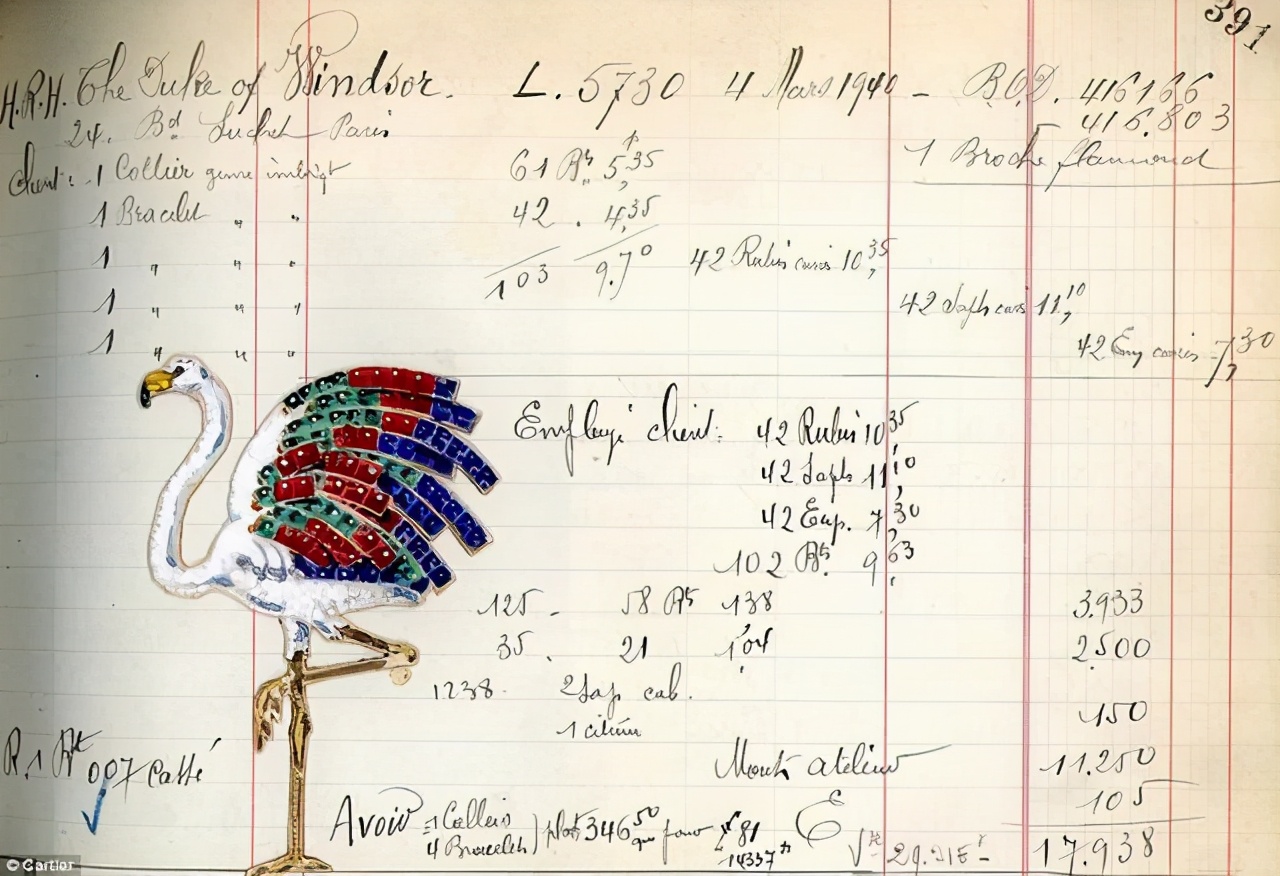 391
H.R.H. The Duke of Windsor. L. 5730 4 Mars 1940 - B.O.D. 416166
24. Bd Suchet Paris 416.803
Client: 1 Collier genre 61 Bts 5,35 1 Broche flamand
1 Bracelet " " 42 . 4,35
1 " " " 103 9.70 42 Rubis carrés 10,35
1 " " " 42 Saph cars 11,10
1 " " " 42 Em carrés 7,30
Employé client: 42 Rubis 10,35
42 Saphs 11,10
42 Em. 7,30
102 Bts. 9,63
125 - 58 Bts 138 3.933
35. 21 1,04 2.500
1238 - 2 Sap cab. 150
1 citrine
R. 1 Bt 007 cassé Mont. atelier 11.250
105
Avoir = 1 Collier
4 Bracelets ) plat 346,50 que pour 81 E 17.938
14337
© Cartier